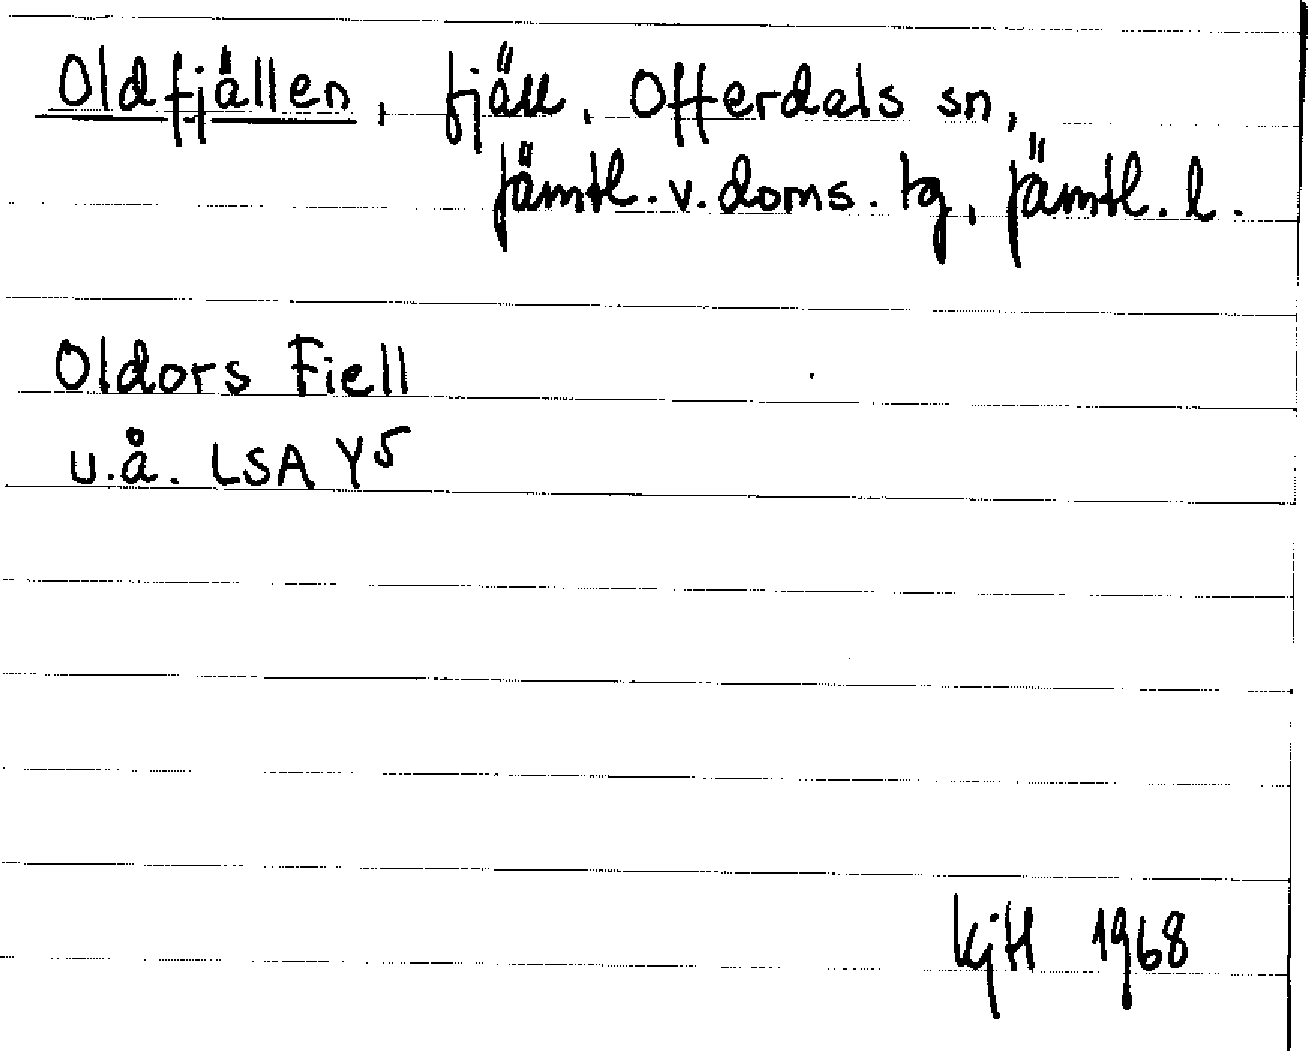 Oldfjällen, fjäll, Offerdals sn,
Jämtl. v. doms. tg, Jämtl. l.
Oldors Fiell
u.å. LSA Y5
KjH 1968